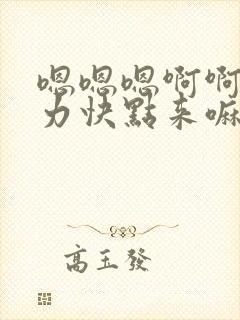 嗯嗯嗯啊啊
力快點来嘛
高玉發